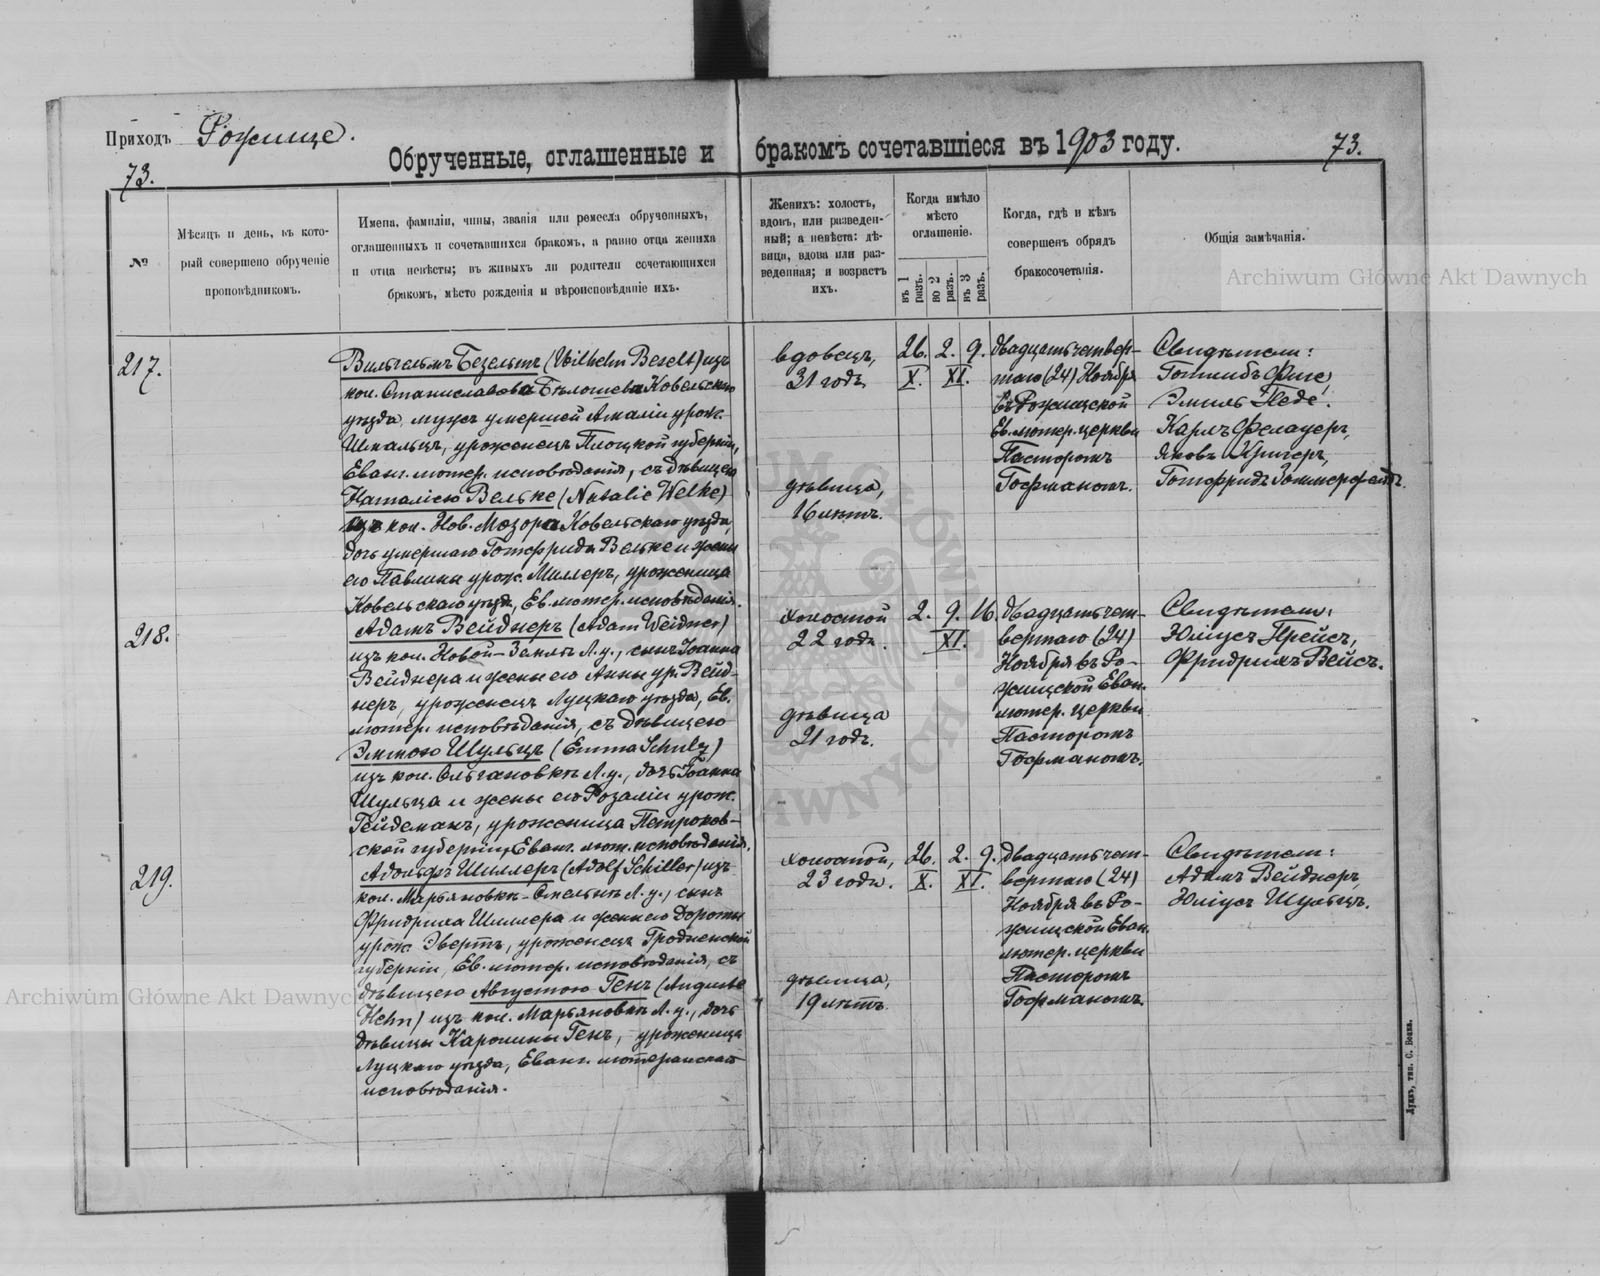 Приходъ Рожище.
73.
Обрученные, оглашенные и бракомъ сочетавшіеся въ 1903 году.
73.
№
Мѣсяцъ и день, въ кото-
рый совершено обрученіе
проповѣдникомъ.
Имена, фамиліи, чины, званія или ремесла обрученныхъ,
оглашенныхъ и сочетавшихся бракомъ, а равно отца жениха
и отца невѣсты; въ живыхъ ли родители сочетающихся
бракомъ, мѣсто рожденія и вѣроисповѣданіе ихъ.
Женихъ: холостъ,
вдовъ, или разведен-
ный; а невѣста: дѣ-
вица, вдова или раз-
веденная; и возрастъ
ихъ.
Когда имѣло
мѣсто
оглашеніе.
въ 1 разъ.
во 2 разъ.
въ 3 разъ.
Когда, гдѣ и кѣмъ
совершенъ обрядъ
бракосочетанія.
Общія замѣчанія.
217.
Вильгельмъ Безельтъ (Wilhelm Beselt) изъ
кол. Станиславова Бѣлошева Ковельскаго
уѣзда, мужъ умершей Амаліи урож.
Шмальцъ, уроженецъ Плоцкой губерніи,
Еванг. лютер. исповѣданія, съ дѣвицею
Наталіею Вельке (Natalie Welke)
изъ кол. Нов. Мозора Ковельскаго уѣзда,
дочь умершаго Готфрида Вельке и жены
его Павлины урож. Миллеръ, уроженица
Ковельскаго уѣзда, Ев. лютер. исповѣданія.
вдовецъ,
31 годъ
дѣвица,
16 лѣтъ.
26. 2. 9.
X. XI.
Двадцатьчетвер-
таго (24) Ноября
въ Рожищской
Ев. лютер. церкви
Пасторомъ
Гофманомъ.
Свидѣтели:
Готлибъ Фие,
Эмиль Неде.
Карлъ Фелауеръ,
Яковъ Кригеръ,
Готфридъ Зоммерфельдъ.
218.
Адамъ Вейднеръ (Adam Weidner)
изъ кол. Новой-Земли Л. у., сынъ Іоанна
Вейднера и жены его Анны ур. Вейд-
неръ, уроженецъ Луцкаго уѣзда, Ев.
лютер. исповѣданія, съ дѣвицею
Эммою Шульцъ (Emma Schulz)
изъ кол. Ольгановки Л. у., дочь Іоанна
Шульца и жены его Розаліи урож.
Гейдеманъ, уроженица Петроков-
ской губерніи, Еванг. лют. исповѣданія.
холостой
22 годъ.
дѣвица
21 годъ.
2. 9. 16.
XI.
Двадцатьчет-
вертаго (24)
Ноября въ Ро-
жищской Еван.
лютер. церкви
Пасторомъ
Гофманомъ.
Свидѣтели:
Юліусъ Прейсъ,
Фридрихъ Вейсъ.
219.
Адольфъ Шиллеръ (Adolf Schiller) изъ
кол. Марьяновки-Смельни Л. у., сынъ
Фридриха Шиллера и жены его Дороты
урож. Эвертъ, уроженецъ Гродненской
губерніи, Ев. лютер. исповѣданія, съ
дѣвицею Августою Генъ (Auguste
Hehn) изъ кол. Марьяновки Л. у., дочь
дѣвицы Каролины Генъ, уроженица
Луцкаго уѣзда, Еванг. лютеранскаго
исповѣданія.
холостой,
23 года.
дѣвица,
19 лѣтъ.
26. 2. 9.
X. XI.
Двадцатьчет-
вертаго (24)
Ноября въ Ро-
жищской Еван.
лютер. церкви
Пасторомъ
Гофманомъ.
Свидѣтели:
Адамъ Вейднеръ,
Юліусъ Шульцъ.
Archiwum Główne Akt Dawnych
Archiwum Główne Akt Dawnych